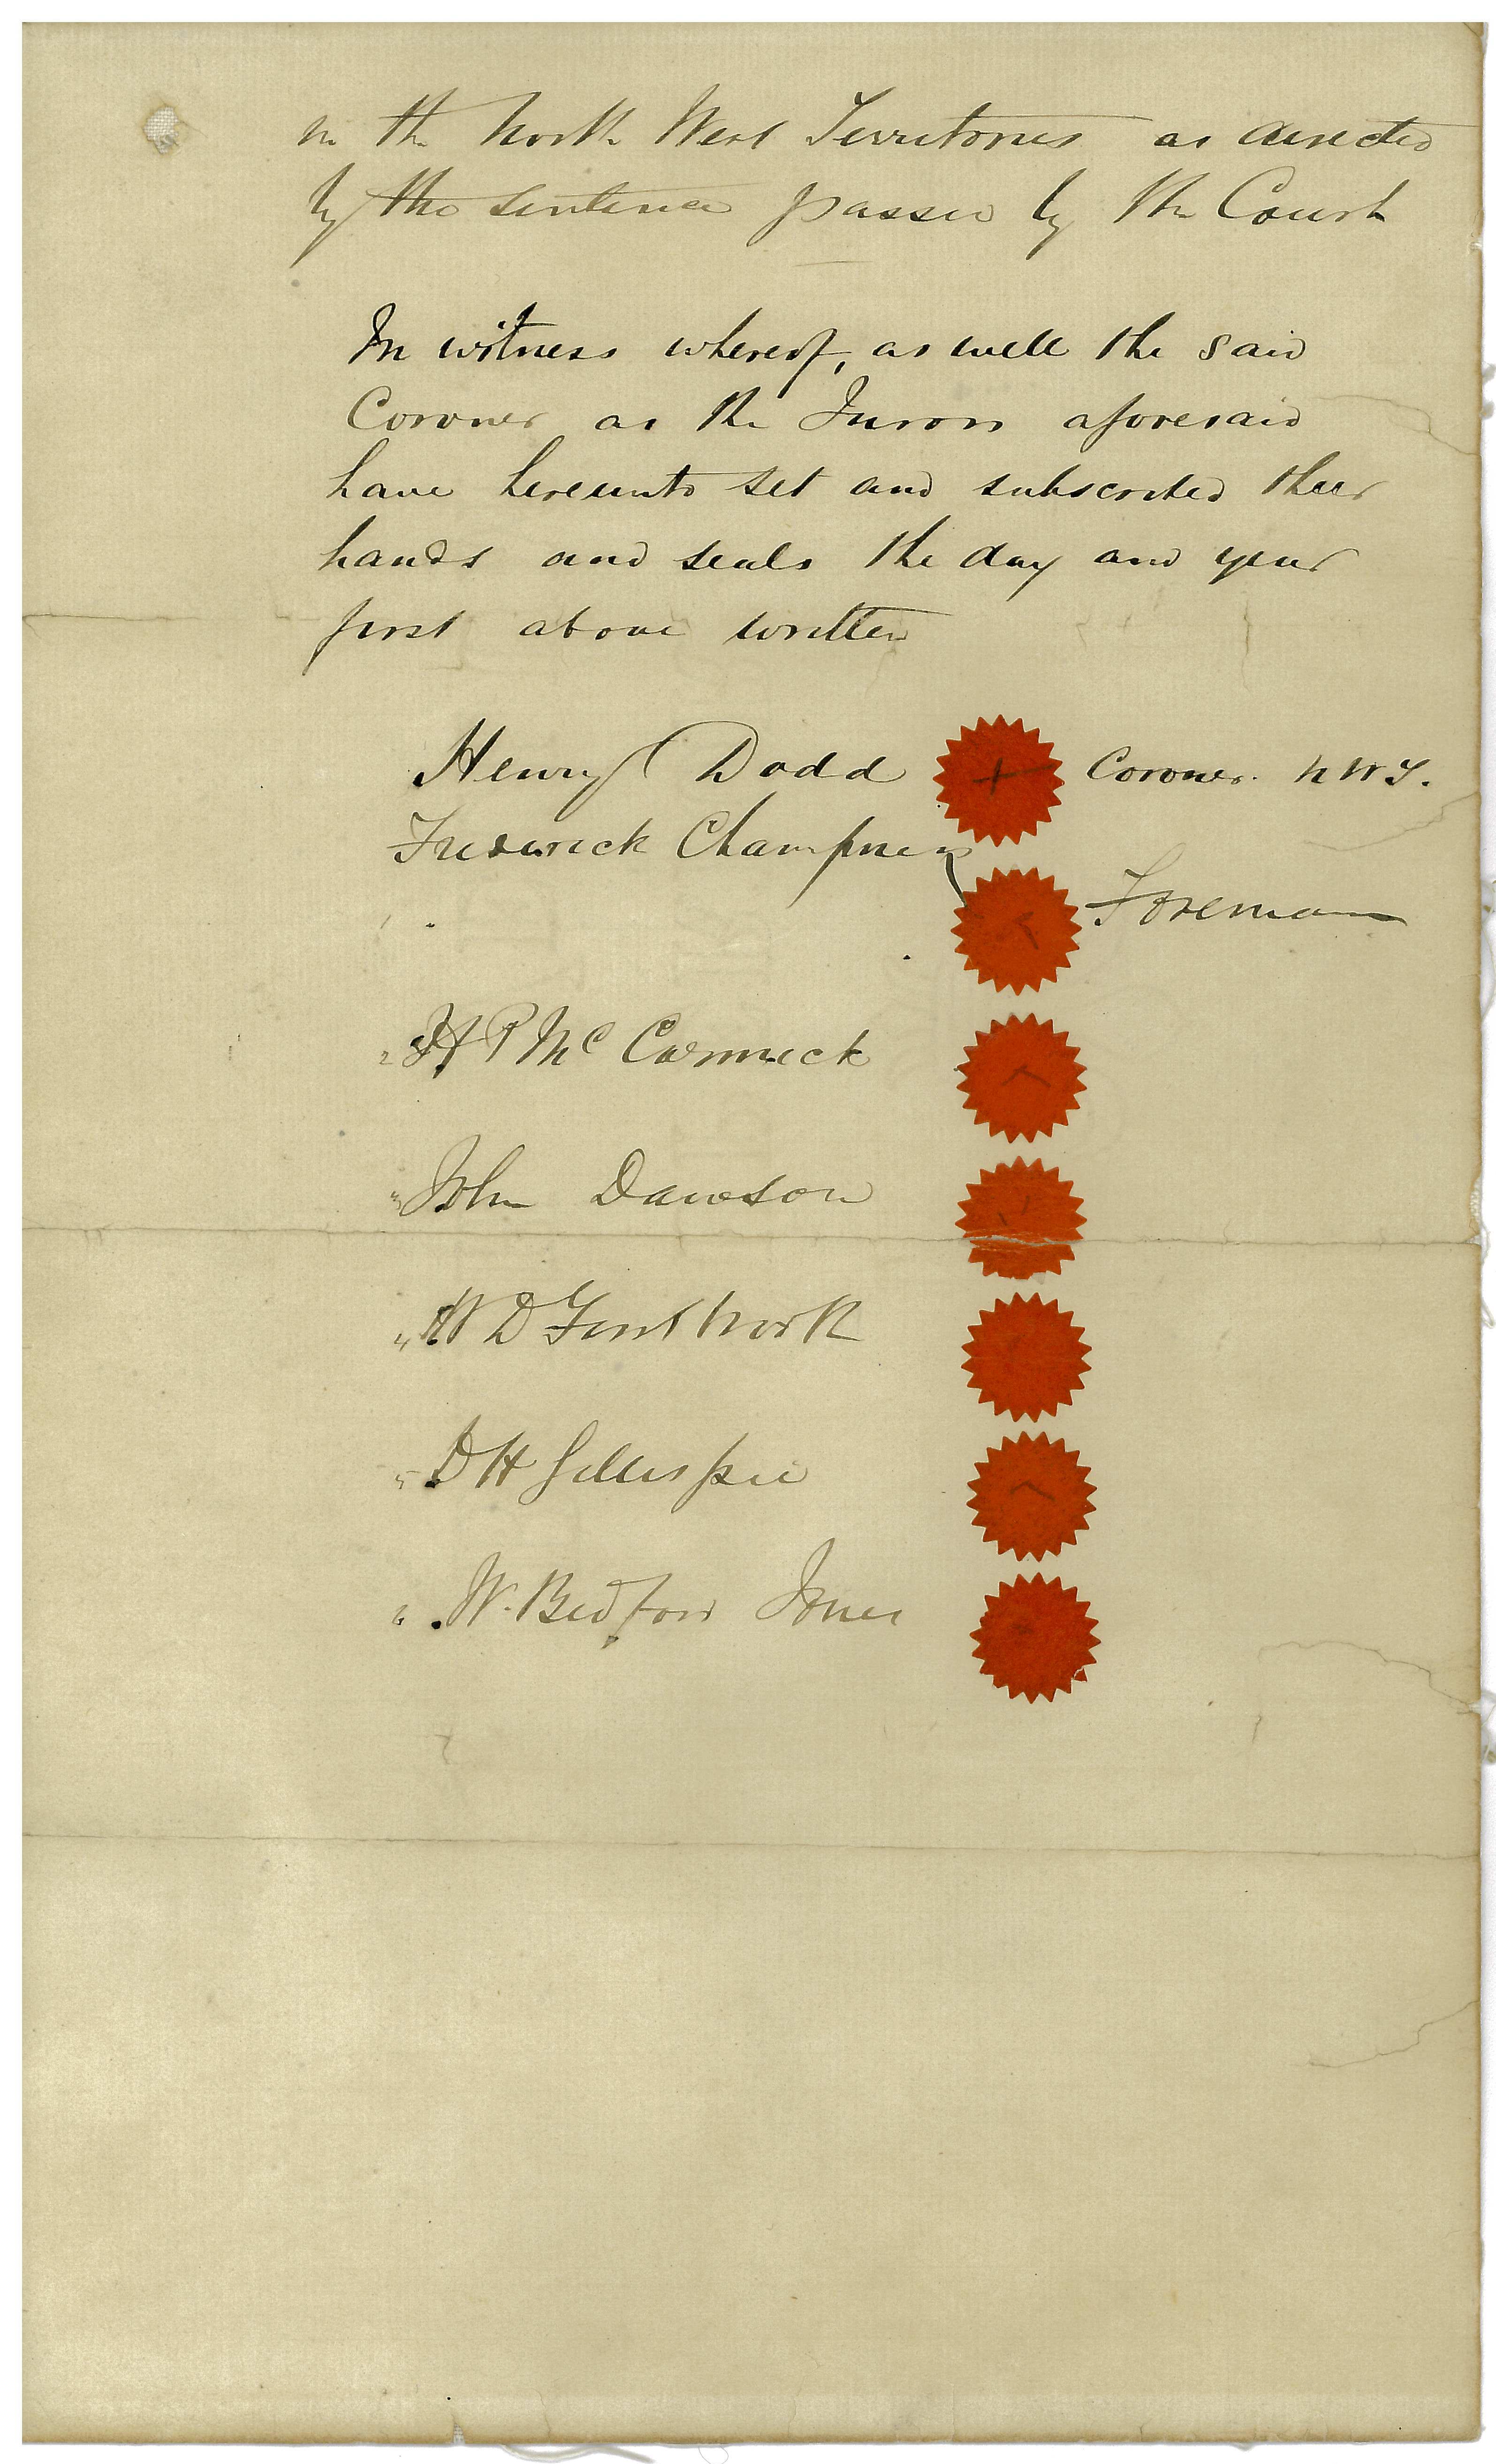 in the North West Territories as directed
by the sentence passed by the Court
In witness whereof, as well the said
Coroner as the Jurors aforesaid
have hereunto set and subscribed their
hands and seals the day and year
first above written
Henry Dodd Coroner. N W T.
Frederick Champness
Foreman
2 H P McCormick
3 John Dawson
4 W D Firstbrook
5 D H Gillespie
6 W. Bedford Jones